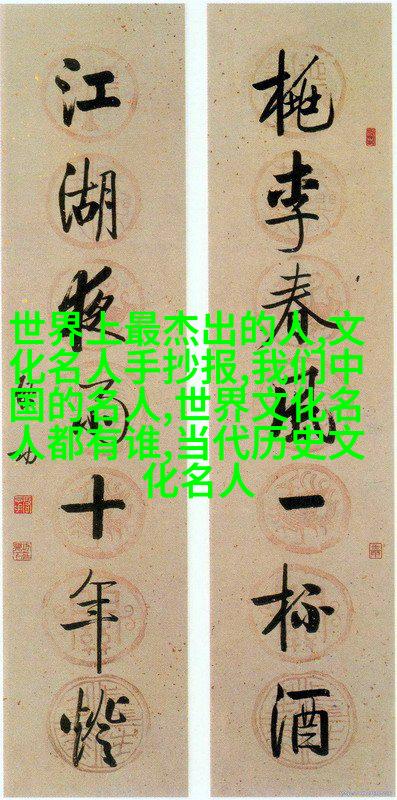 桃李春风一杯酒
江湖夜雨十年灯
启功
世界上最杰出的人,文
化名人手抄报,我们中
国的名人,世界文化名
人都有谁,当代历史文
化名人